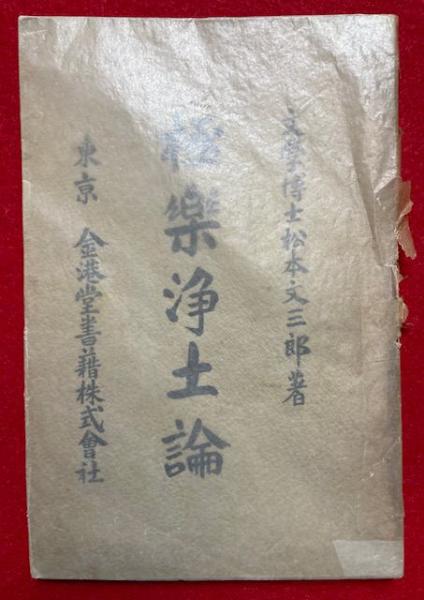 文學博士松本文三郎著
極樂浄土論
東京 金港堂書籍株式會社